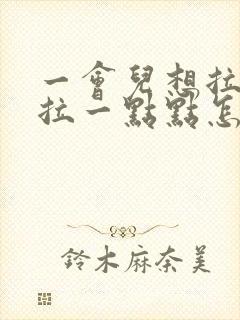 一會兒想拉
拉一點點怎
鈴木麻奈美